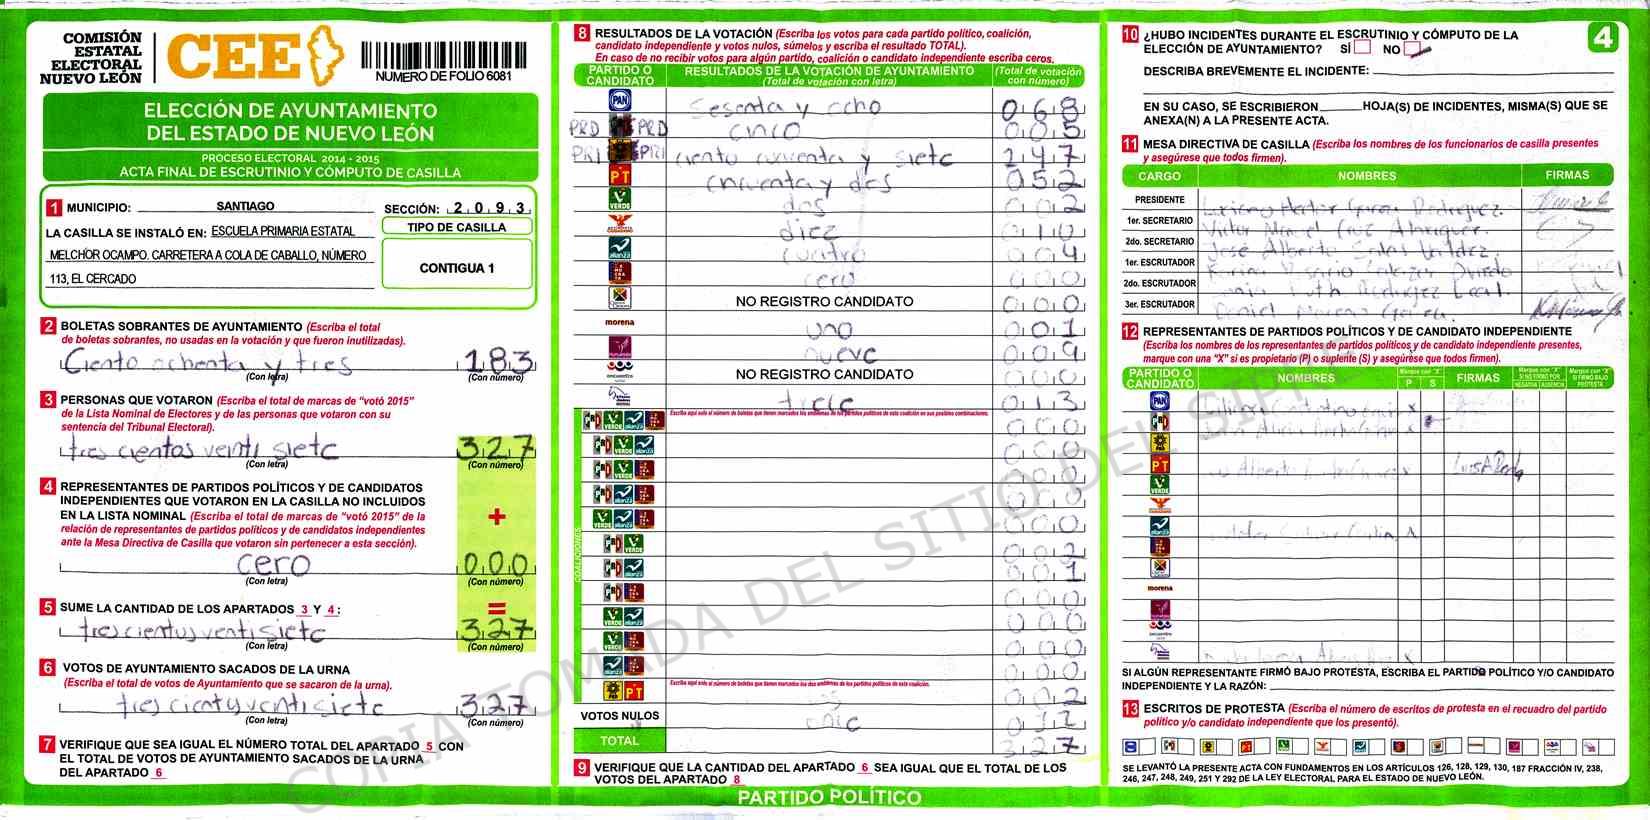 COMISIÓN
ESTATAL
ELECTORAL
NUEVO LEÓN
CEE
NUMERO DE FOLIO 6081
ELECCIÓN DE AYUNTAMIENTO
DEL ESTADO DE NUEVO LEÓN
PROCESO ELECTORAL 2014 - 2015
ACTA FINAL DE ESCRUTINIO Y CÓMPUTO DE CASILLA
1 MUNICIPIO: SANTIAGO SECCIÓN: 2 0 9 3
LA CASILLA SE INSTALÓ EN: ESCUELA PRIMARIA ESTATAL
MELCHOR OCAMPO. CARRETERA A COLA DE CABALLO, NÚMERO
113, EL CERCADO
TIPO DE CASILLA
CONTIGUA 1
2 BOLETAS SOBRANTES DE AYUNTAMIENTO (Escriba el total
de boletas sobrantes, no usadas en la votación y que fueron inutilizadas).
Ciento ochenta y tres 183
(Con letra) (Con número)
3 PERSONAS QUE VOTARON (Escriba el total de marcas de "votó 2015"
de la Lista Nominal de Electores y de las personas que votaron con su
sentencia del Tribunal Electoral).
tres cientos venti siete 327
(Con letra) (Con número)
4 REPRESENTANTES DE PARTIDOS POLÍTICOS Y DE CANDIDATOS
INDEPENDIENTES QUE VOTARON EN LA CASILLA NO INCLUIDOS
EN LA LISTA NOMINAL (Escriba el total de marcas de "votó 2015" de la
relación de representantes de partidos políticos y de candidatos independientes
ante la Mesa Directiva de Casilla que votaron sin pertenecer a esta sección).
+
cero 000
(Con letra) (Con número)
5 SUME LA CANTIDAD DE LOS APARTADOS 3 Y 4:
=
tres cientos venti siete 327
(Con letra) (Con número)
6 VOTOS DE AYUNTAMIENTO SACADOS DE LA URNA
(Escriba el total de votos de Ayuntamiento que se sacaron de la urna).
tres cientos venti siete 327
(Con letra) (Con número)
7 VERIFIQUE QUE SEA IGUAL EL NÚMERO TOTAL DEL APARTADO 5 CON
EL TOTAL DE VOTOS DE AYUNTAMIENTO SACADOS DE LA URNA
DEL APARTADO 6
8 RESULTADOS DE LA VOTACIÓN (Escriba los votos para cada partido político, coalición,
candidato independiente y votos nulos, súmelos y escriba el resultado TOTAL).
En caso de no recibir votos para algún partido, coalición o candidato independiente escriba ceros.
PARTIDO O CANDIDATO RESULTADOS DE LA VOTACIÓN DE AYUNTAMIENTO (Total de votación con letra) (Total de votación con número)
PAN Sesenta y ocho 068
PRD PRD cinco 005
PRI PRI ciento cuarenta y siete 147
PT cincuenta y dos 052
VERDE dos 002
diez 010
alianza cuatro 004
cero 000
NO REGISTRO CANDIDATO 000
morena uno 001
nueve 009
encuentro NO REGISTRO CANDIDATO 000
trece 013
Escriba aquí solo el número de boletas que tienen marcados los emblemas de los partidos políticos de esta coalición en sus posibles combinaciones.
COALICIONES
000
000
000
000
000
002
001
000
000
000
000
Escriba aquí solo el número de boletas que tienen marcados los dos emblemas de los partidos políticos de esta coalición.
PT 002
VOTOS NULOS once 011
TOTAL 327
9 VERIFIQUE QUE LA CANTIDAD DEL APARTADO 6 SEA IGUAL QUE EL TOTAL DE LOS
VOTOS DEL APARTADO 8
PARTIDO POLÍTICO
10 ¿HUBO INCIDENTES DURANTE EL ESCRUTINIO Y CÓMPUTO DE LA
ELECCIÓN DE AYUNTAMIENTO? SÍ NO
4
DESCRIBA BREVEMENTE EL INCIDENTE:
EN SU CASO, SE ESCRIBIERON HOJA(S) DE INCIDENTES, MISMA(S) QUE SE
ANEXA(N) A LA PRESENTE ACTA.
11 MESA DIRECTIVA DE CASILLA (Escriba los nombres de los funcionarios de casilla presentes
y asegúrese que todos firmen).
CARGO NOMBRES FIRMAS
PRESIDENTE Garza Rodriguez
1er. SECRETARIO Victor Manuel Cruz
2do. SECRETARIO José Alberto Salas Valdez
1er. ESCRUTADOR Oviedo
2do. ESCRUTADOR Ruth Rodriguez Leal
3er. ESCRUTADOR Daniel Moreno
12 REPRESENTANTES DE PARTIDOS POLÍTICOS Y DE CANDIDATO INDEPENDIENTE
(Escriba los nombres de los representantes de partidos políticos y de candidato independiente presentes,
marque con una "X" si es propietario (P) o suplente (S) y asegúrese que todos firmen).
PARTIDO O CANDIDATO NOMBRES Marque con "X" P S FIRMAS Marque con "X" SI NO FIRMÓ POR NEGATIVA AUSENCIA Marque con "X" SI FIRMÓ BAJO PROTESTA
PAN x
PRD x
PT Alberto x
VERDE
alianza x
morena
encuentro
x
SI ALGÚN REPRESENTANTE FIRMÓ BAJO PROTESTA, ESCRIBA EL PARTIDO POLÍTICO Y/O CANDIDATO
INDEPENDIENTE Y LA RAZÓN:
13 ESCRITOS DE PROTESTA (Escriba el número de escritos de protesta en el recuadro del partido
político y/o candidato independiente que los presentó).
SE LEVANTÓ LA PRESENTE ACTA CON FUNDAMENTOS EN LOS ARTÍCULOS 126, 128, 129, 130, 187 FRACCIÓN IV, 238,
246, 247, 248, 249, 251 Y 292 DE LA LEY ELECTORAL PARA EL ESTADO DE NUEVO LEÓN.
COPIA TOMADA DEL SITIO DEL SIPRE